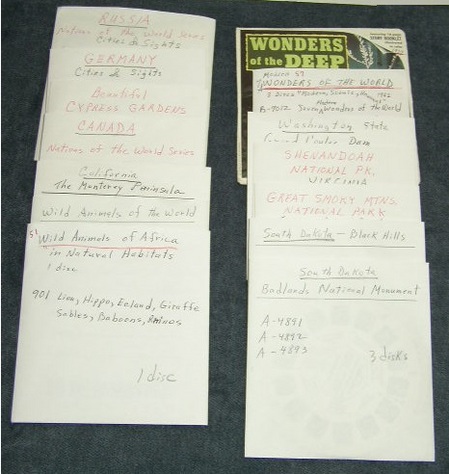 RUSSIA
Nations of the World Series
Cities & Sights
GERMANY
Cities & Sights
Beautiful
CYPRESS GARDENS
CANADA
Nations of the World Series
California
The Monterey Peninsula
Wild Animals of the World
Wild Animals of Africa
in Natural Habitats
1 disc
901 Lion, Hippo, Eeland, Giraffe
Sables, Baboons, Rhinos
1 disc
WONDERS
of the DEEP
WONDERS OF THE WORLD
B-9012 Seven Wonders of the World
Washington State
Dam
SHENANDOAH
NATIONAL PK.
VIRGINIA
GREAT SMOKY MTNS.
NATIONAL PARK
South Dakota - Black Hills
South Dakota
Badlands National Monument
A-4891
A-4892
A-4893
3 disks